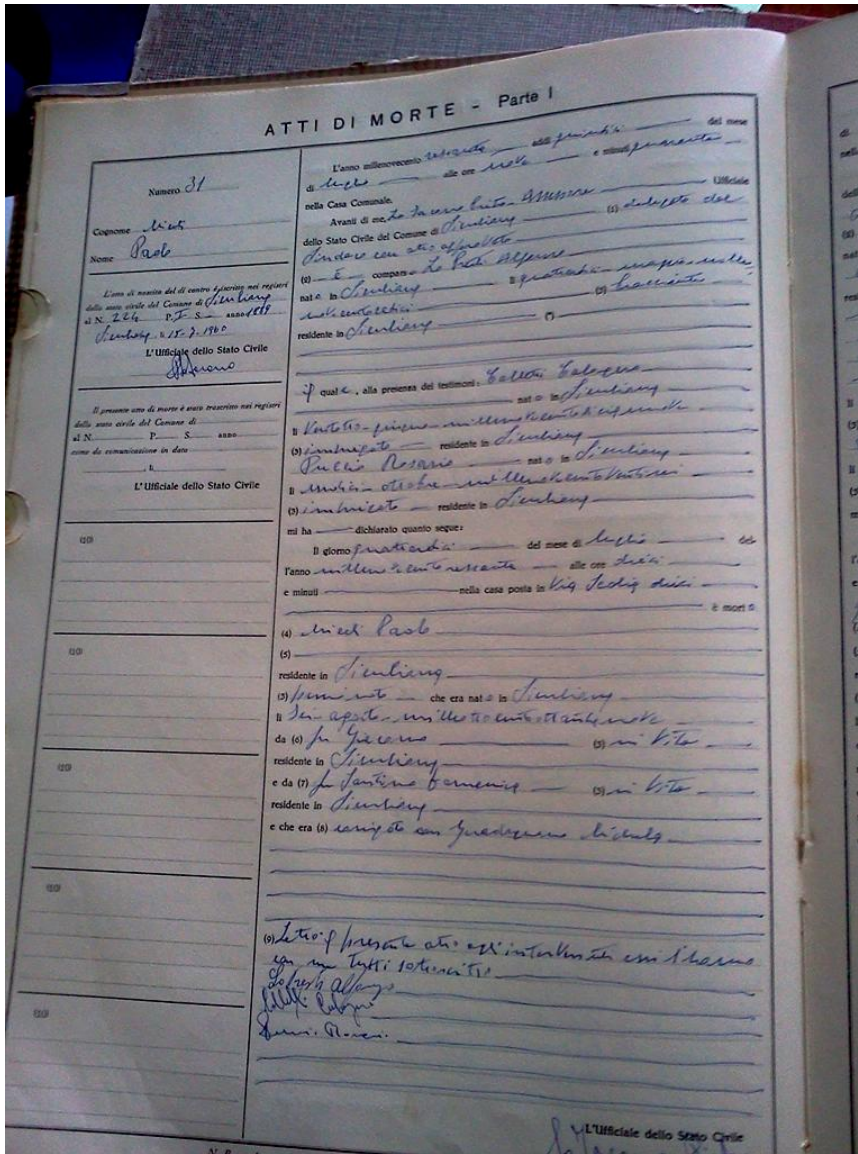 ATTI DI MORTE - Parte I
Numero 31
Cognome
Nome Paolo
L'atto di nascita del di contro è iscritto nei registri
dello stato civile del Comune di Siculiana
al N. 224 P. I S. anno 1889
Siculiana, li 15-7-1960
L'Ufficiale dello Stato Civile
Il presente atto di morte è stato trascritto nei registri
dello stato civile del Comune di
al N. P. S. anno
come da comunicazione in data
, li
L'Ufficiale dello Stato Civile
(10)
(10)
(10)
(10)
(10)
L'anno millenovecento sessanta addì quindici del mese
di luglio alle ore nove e minuti quaranta
nella Casa Comunale.
Avanti di me, Assessore Ufficiale
dello Stato Civile del Comune di Siculiana (1) delegato dal
Sindaco con atto approvato
(2) È comparso Alfonso
nato in Siculiana li quattordici maggio mille
novecento (3) bracciante
residente in Siculiana (*)
il quale, alla presenza dei testimoni: Calogero
nato in Siculiana
li ventotto giugno millenovecentodiciannove
(3) impiegato residente in Siculiana
Puccio Rosario nato in Siculiana
li undici ottobre millenovecentoventisei
(3) impiegato residente in Siculiana
mi ha dichiarato quanto segue:
Il giorno quattordici del mese di luglio del-
l'anno millenovecentosessanta alle ore dieci
e minuti nella casa posta in Via dieci
è morto
(4) Paolo
(5)
residente in Siculiana
(3) che era nato in Siculiana
li sei agosto milleottocentottantanove
da (6) fu Giacomo (3) in vita
residente in Siculiana
e da (7) fu Domenica (3) in vita
residente in Siculiana
e che era (8) coniugato con
(9) Letto il presente atto agli intervenuti essi l'hanno
con me tutti sottoscritto
L'Ufficiale dello Stato Civile